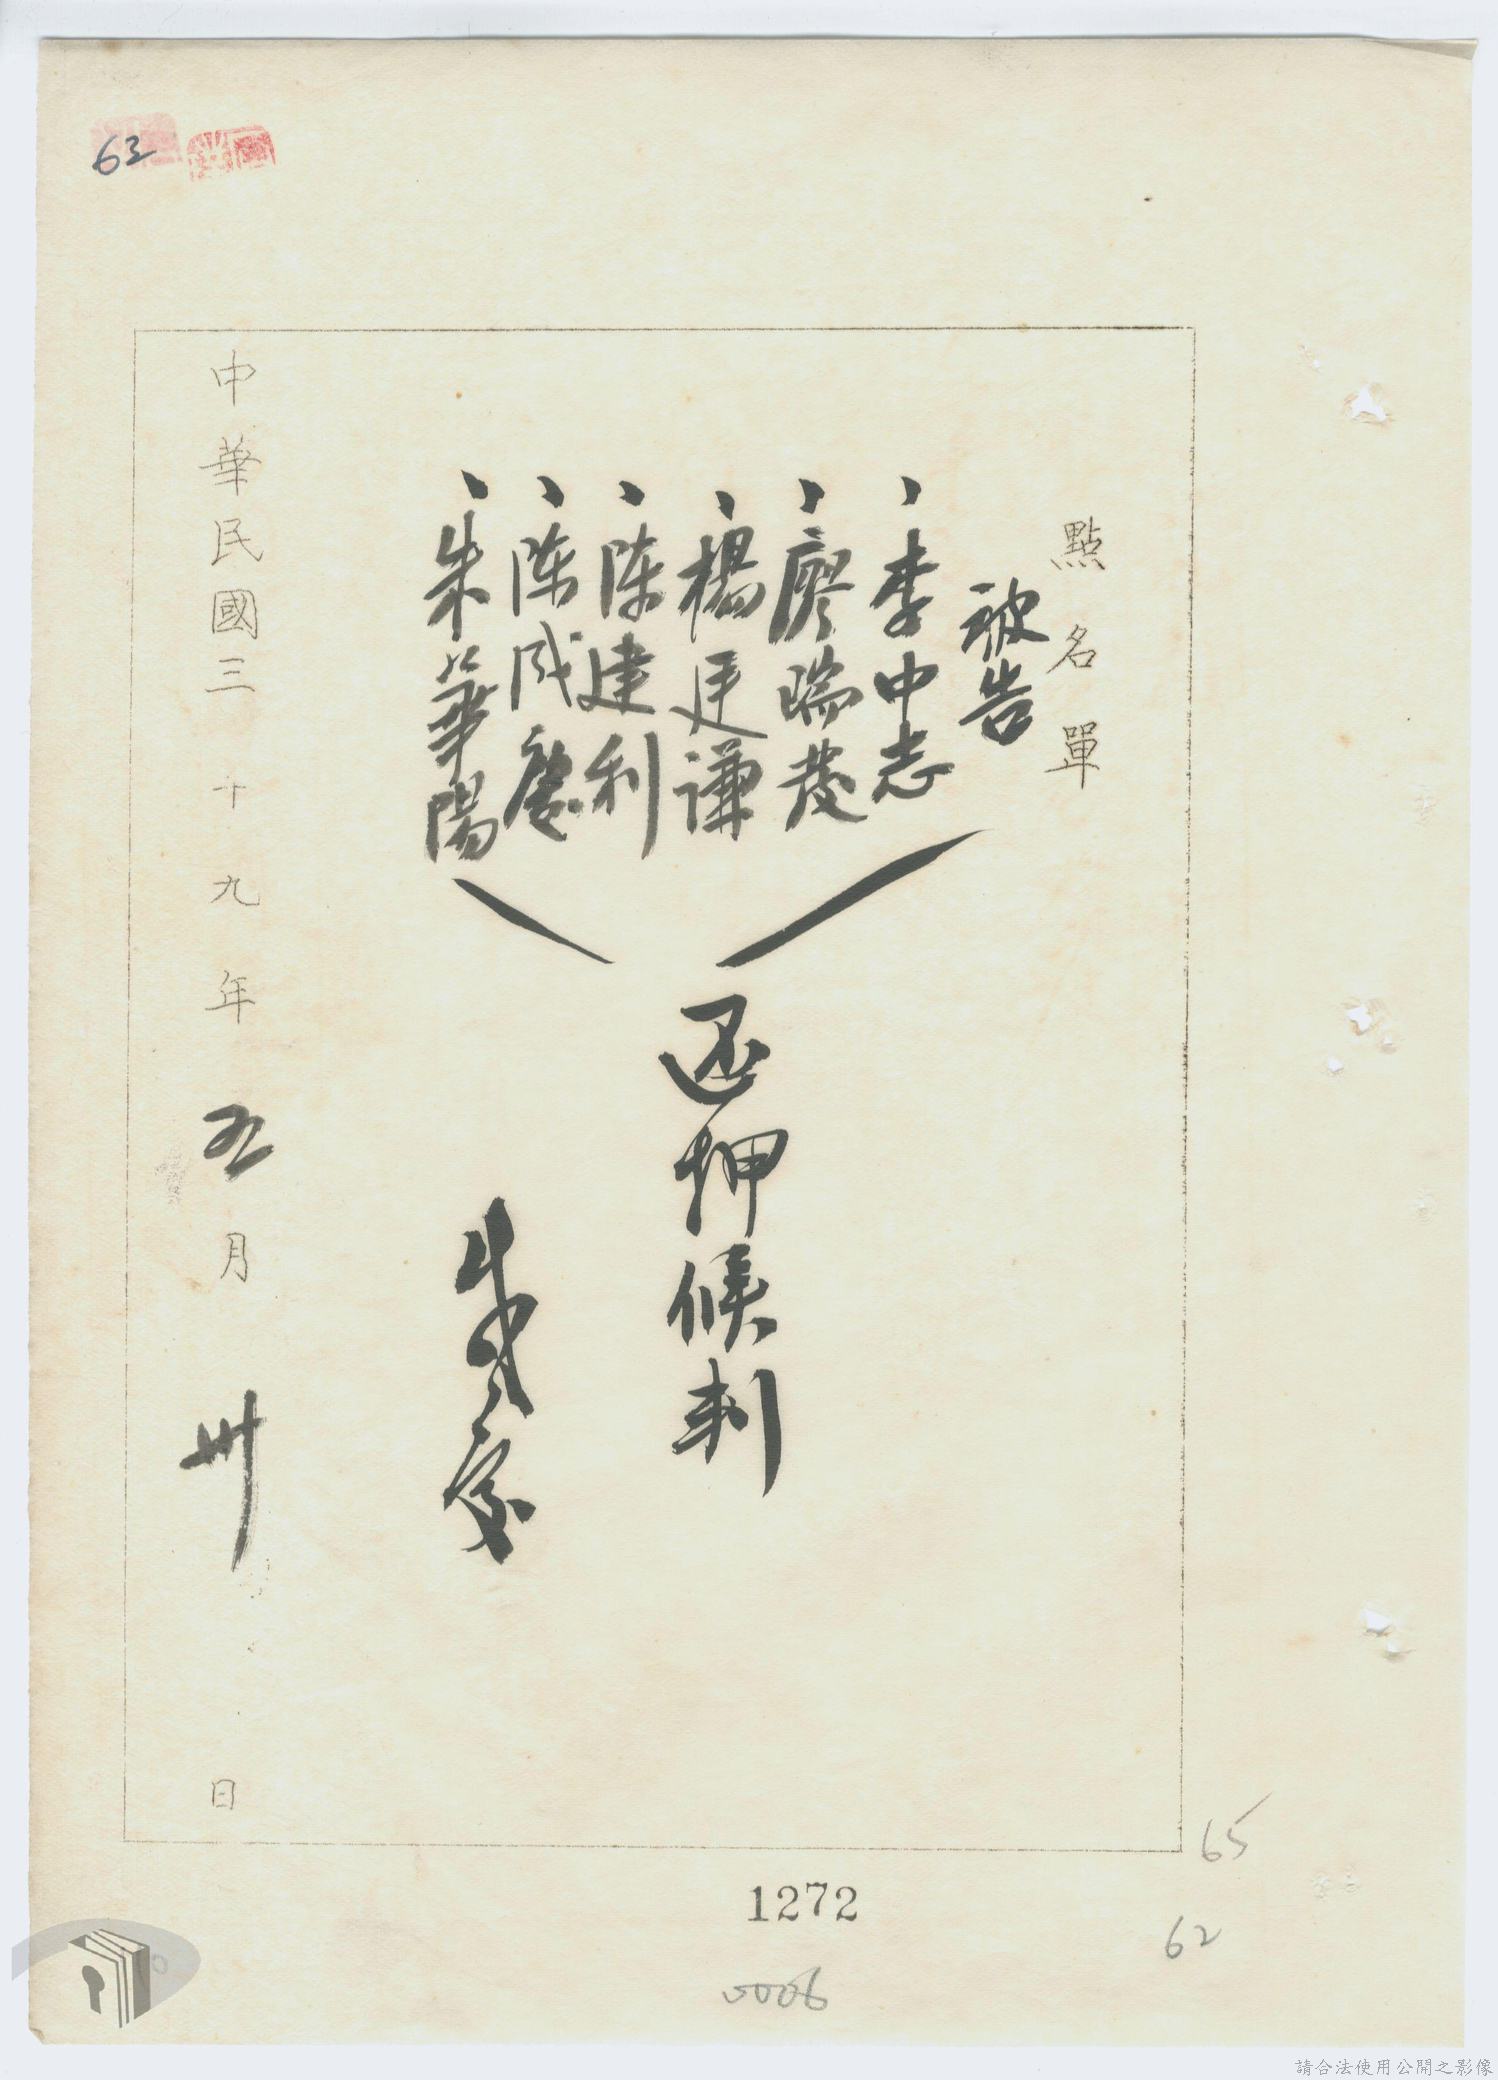 63
點名單
被告
李中志
廖瑞發
楊廷謙
陈建利
陈成慶
朱華陽
还押候判
中華民國三十九年五月卅日
65
1272
62
0006
請合法使用公開之影像